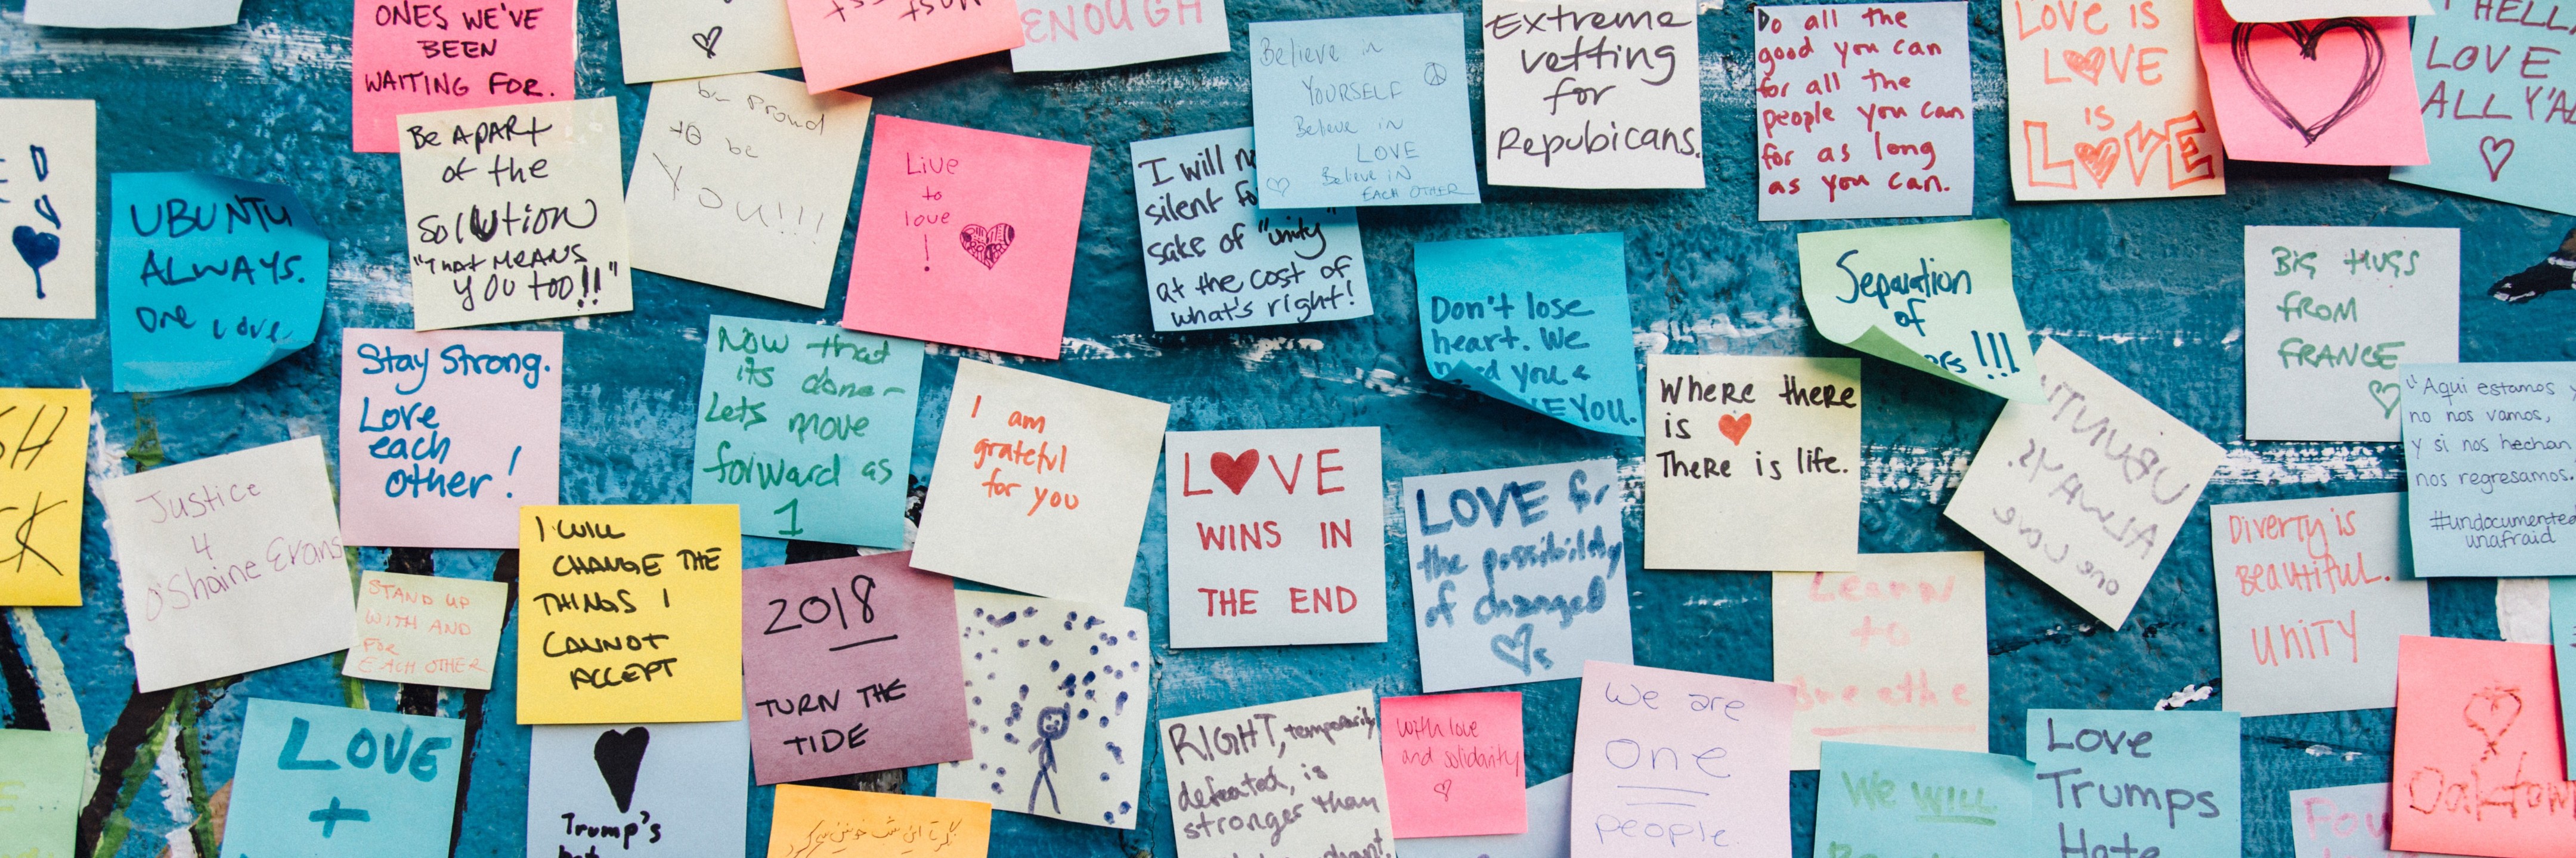 ONES WE'VE
BEEN
WAITING FOR.
ENOUGH
Believe in
YOURSELF
Believe in
LOVE
Believe in
EACH OTHER
Extreme
vetting
for
Repubicans.
Do all the
good you can
for all the
people you can
for as long
as you can.
LOVE IS
LOVE
IS
LOVE
HELL
LOVE
ALL Y'A
UBUNTU
ALWAYS.
One Love
Be APART
of the
SOLUTION
"That MEANS
YOU too!!"
be proud
to be
YOU!!!
Live
to
love
!
I will
silent
sake of "unity"
at the cost of
what's right!
Don't lose
heart. We
need you &
YOU.
Separation
of
!!!
BIG HUGS
FROM
FRANCE
Stay Strong.
Love
each
other!
Now that
its done-
Lets move
forward as
1
I am
grateful
for you
LOVE
WINS IN
THE END
LOVE for
the possibility
of changed
Where there
is
There is life.
UBUNTU
ALWAYS.
one love
"Aqui estamos y
no nos vamos,
y si nos hechan,
nos regresamos."
#undocumented
unafraid
Justice
4
O'Shaine Evans
STAND UP
WITH AND
FOR
EACH OTHER
I WILL
CHANGE THE
THINGS I
CANNOT
ACCEPT
2018
TURN THE
TIDE
Learn
to
breathe
Diverty is
Beautiful.
UNITY
LOVE
+
Trump's
RIGHT, temporarily
defeated, is
stronger than
with love
and solidarity
We are
one
people.
We WILL
Love
Trumps
Hate
Oaktown